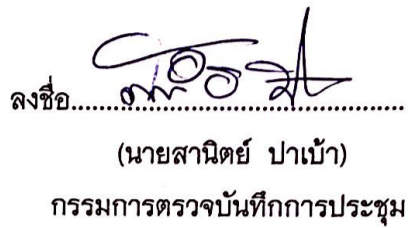 ลงชื่อ..........................................
(นายสานิตย์ ปาเบ้า)
กรรมการตรวจบันทึกการประชุม